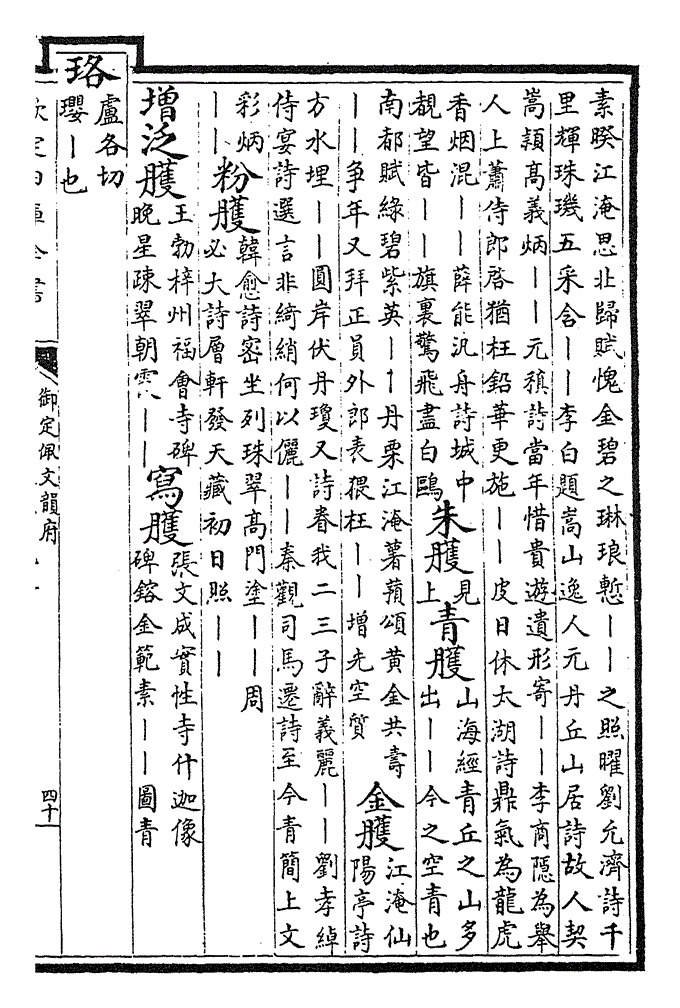 素暌江淹思北歸賦愧金碧之琳琅慙丨丨之照曜劉允濟詩千
里輝珠璣五采含丨丨李白題嵩山逸人元丹丘山居詩故人契
嵩潁高義炳丨丨元稹詩當年惜貴遊遺形寄丨丨李商隱為舉
人上蕭侍郎啓猶枉鉛華更施丨丨皮日休太湖詩鼎氣為龍虎
香烟混丨丨薛能汎舟詩城中
覩望皆丨丨旗裏驚飛盡白鷗
朱雘
見
上
青雘
山海經青丘之山多
出丨丨今之空青也
南都賦綠碧紫英丨丨丹栗江淹薯蕷頌黃金共壽
丨丨爭年又拜正員外郎表猥枉丨丨增光空質
金雘
江淹仙
陽亭詩
方水埋丨丨圓岸伏丹瓊又詩眷我二三子辭義麗丨丨劉孝綽
侍宴詩選言非綺綃何以儷丨丨秦觀司馬遷詩至今青簡上文
彩炳
丨丨
粉雘
韓愈詩密坐列珠翠高門塗丨丨周
必大詩層軒發天藏初日照丨丨
增泛雘
王勃梓州福會寺碑
晚星疎翠朝雲丨丨
寫雘
張文成實性寺什迦像
碑鎔金範素丨丨圖青
珞
盧各切
瓔丨也
欽定四庫全書
御定佩文韻府
四十一